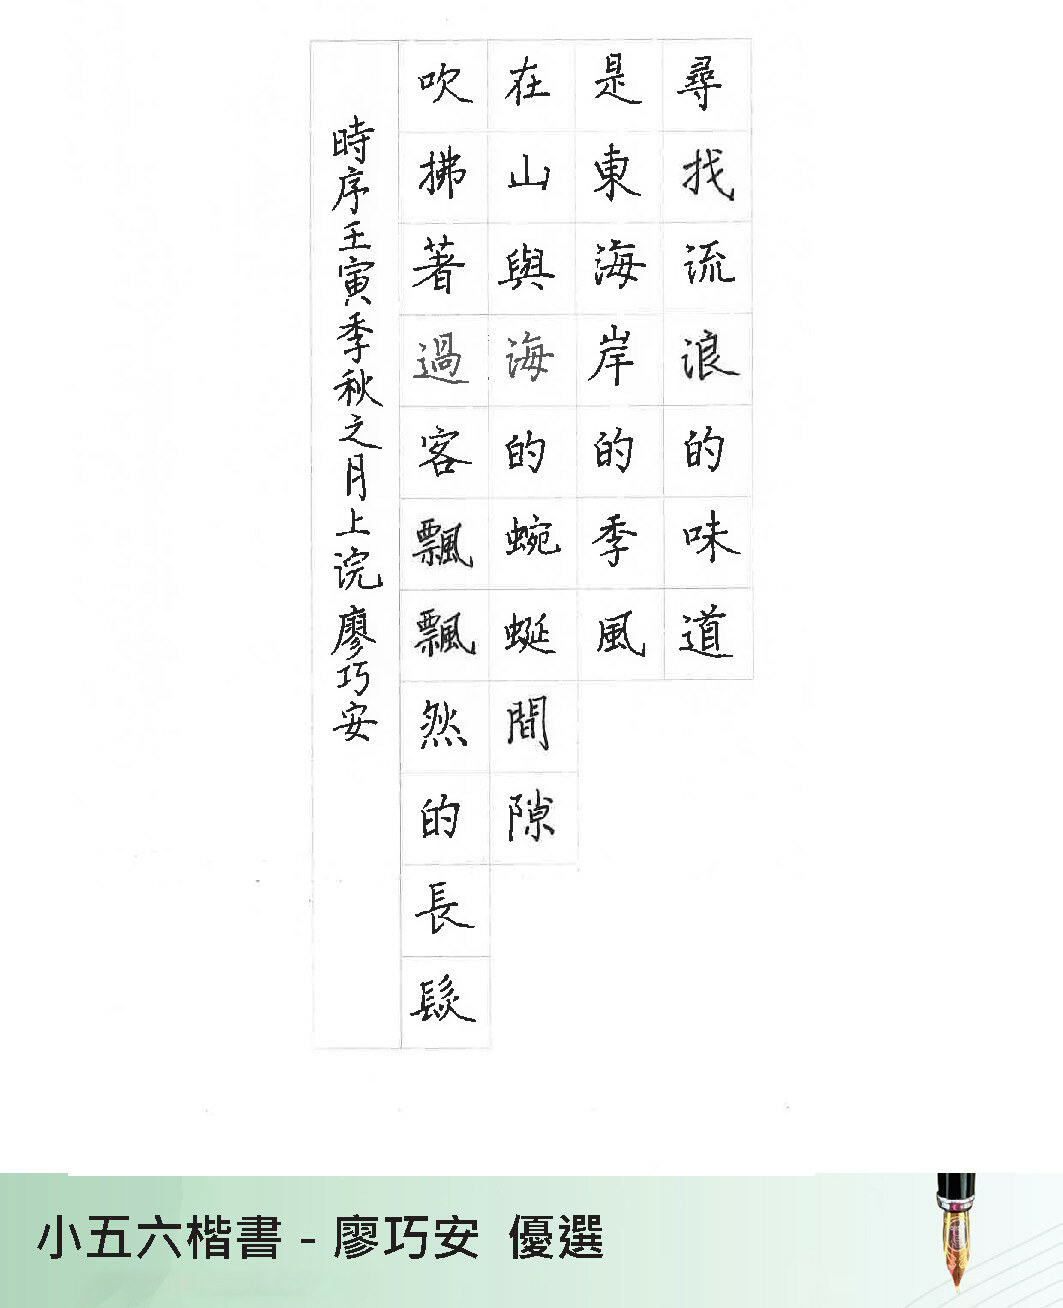 尋找流浪的味道
是東海岸的季風
在山與海的蜿蜒間隙
吹拂著過客飄飄然的長髮
時序壬寅季秋之月上浣廖巧安
小五六楷書 - 廖巧安 優選